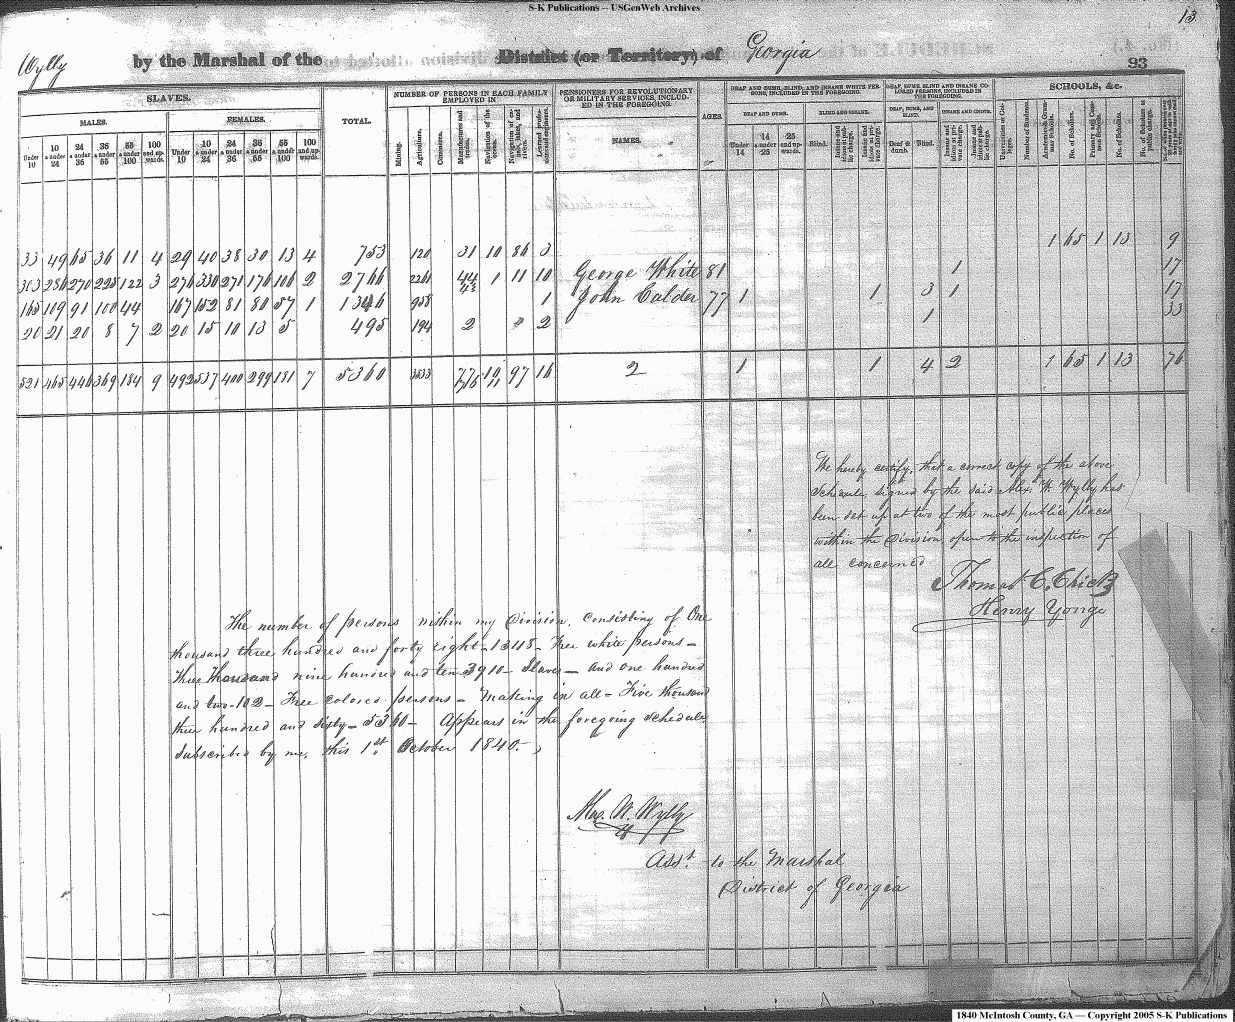 S-K Publications -- USGenWeb Archives
13
Wylly by the Marshal of the District (or Territory) of Georgia
93
SLAVES.
TOTAL.
NUMBER OF PERSONS IN EACH FAMILY EMPLOYED IN
PENSIONERS FOR REVOLUTIONARY OR MILITARY SERVICES, INCLUDED IN THE FOREGOING.
AGES.
DEAF AND DUMB, BLIND, AND INSANE WHITE PERSONS, INCLUDED IN THE FOREGOING.
DEAF, DUMB, BLIND AND INSANE COLORED PERSONS, INCLUDED IN THE FOREGOING.
SCHOOLS, &c.
MALES. FEMALES.
NAMES.
DEAF AND DUMB. BLIND AND INSANE. DEAF, DUMB, AND BLIND. INSANE AND IDIOTS.
Under 10 10 & under 24 24 & under 36 36 & under 55 55 & under 100 100 and upwards.
Under 10 10 & under 24 24 & under 36 36 & under 55 55 & under 100 100 and upwards.
Mining. Agriculture. Commerce. Manufactures and trades. Navigation of the ocean.
Under 14 14 & under 25 25 and upwards. Blind. Insane and idiots at public charge. Insane and idiots at private charge.
Deaf & dumb. Blind. Insane and idiots at private charge. Insane and idiots at public charge.
Number of Students. No. of Scholars. No. of Scholars.
1 65 1 13 9
33 49 65 36 11 4 29 40 38 30 13 4 753 120 31 10 86 3
303 286 270 225 122 3 276 330 271 176 106 2 2766 2261 44 1 11 10 George White 81 1 17
165 109 91 100 44 167 152 81 80 57 1 1346 958 1 John Calder 77 1 1 3 1 17
20 21 20 8 7 2 20 15 10 13 5 495 194 2 2 1 33
521 465 446 369 184 9 492 537 400 299 181 7 5360 3533 77 97 16 2 1 1 4 2 1 65 1 13 76
We hereby certify, that a correct copy of the above
Schedule, signed by the said Alex. W. Wylly has
been set up at two of the most public places
within the Division, open to the inspection of
all concerned
Thomas C. Chick
Henry Yonge
The number of persons within my Division, consisting of One
thousand three hundred and forty eight - 1348 - Free white persons -
three thousand nine hundred and ten 3910 - Slaves - and one hundred
and two - 102 - Free colored persons - making in all - Five thousand
three hundred and sixty - 5360 - Appears in the foregoing schedule,
Subscribed by me, this 1st October 1840.
Alex. W. Wylly
Asst. to the Marshal
District of Georgia
1840 McIntosh County, GA — Copyright 2005 S-K Publications